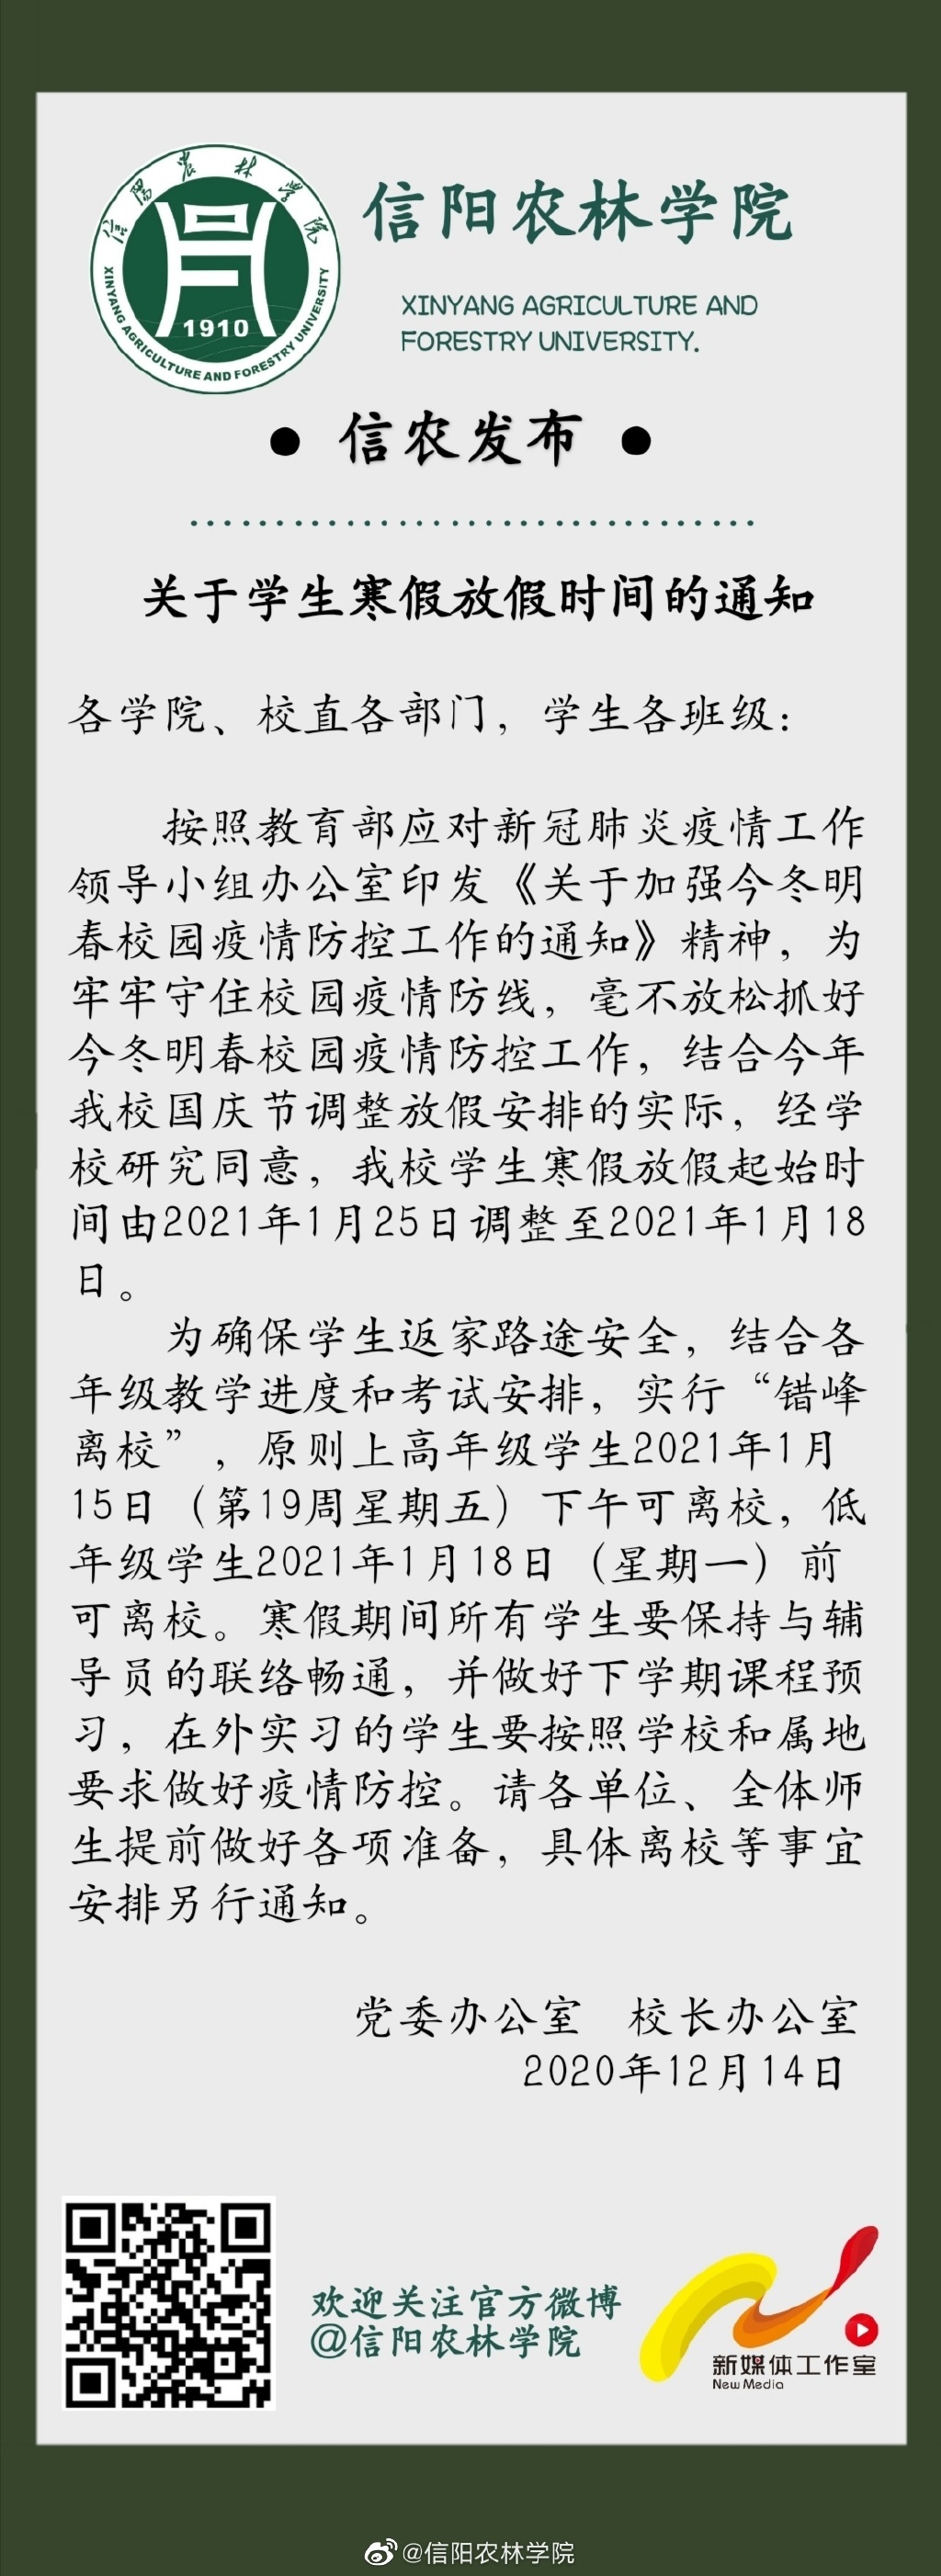 信阳农林学院
XINYANG AGRICULTURE AND FORESTRY UNIVERSITY
1910
信阳农林学院
XINYANG AGRICULTURE AND
FORESTRY UNIVERSITY.
● 信农发布 ●
关于学生寒假放假时间的通知
各学院、校直各部门，学生各班级：
按照教育部应对新冠肺炎疫情工作
领导小组办公室印发《关于加强今冬明
春校园疫情防控工作的通知》精神，为
牢牢守住校园疫情防线，毫不放松抓好
今冬明春校园疫情防控工作，结合今年
我校国庆节调整放假安排的实际，经学
校研究同意，我校学生寒假放假起始时
间由2021年1月25日调整至2021年1月18
日。
为确保学生返家路途安全，结合各
年级教学进度和考试安排，实行“错峰
离校”，原则上高年级学生2021年1月
15日（第19周星期五）下午可离校，低
年级学生2021年1月18日（星期一）前
可离校。寒假期间所有学生要保持与辅
导员的联络畅通，并做好下学期课程预
习，在外实习的学生要按照学校和属地
要求做好疫情防控。请各单位、全体师
生提前做好各项准备，具体离校等事宜
安排另行通知。
党委办公室 校长办公室
2020年12月14日
欢迎关注官方微博
@信阳农林学院
新媒体工作室
New Media
@信阳农林学院